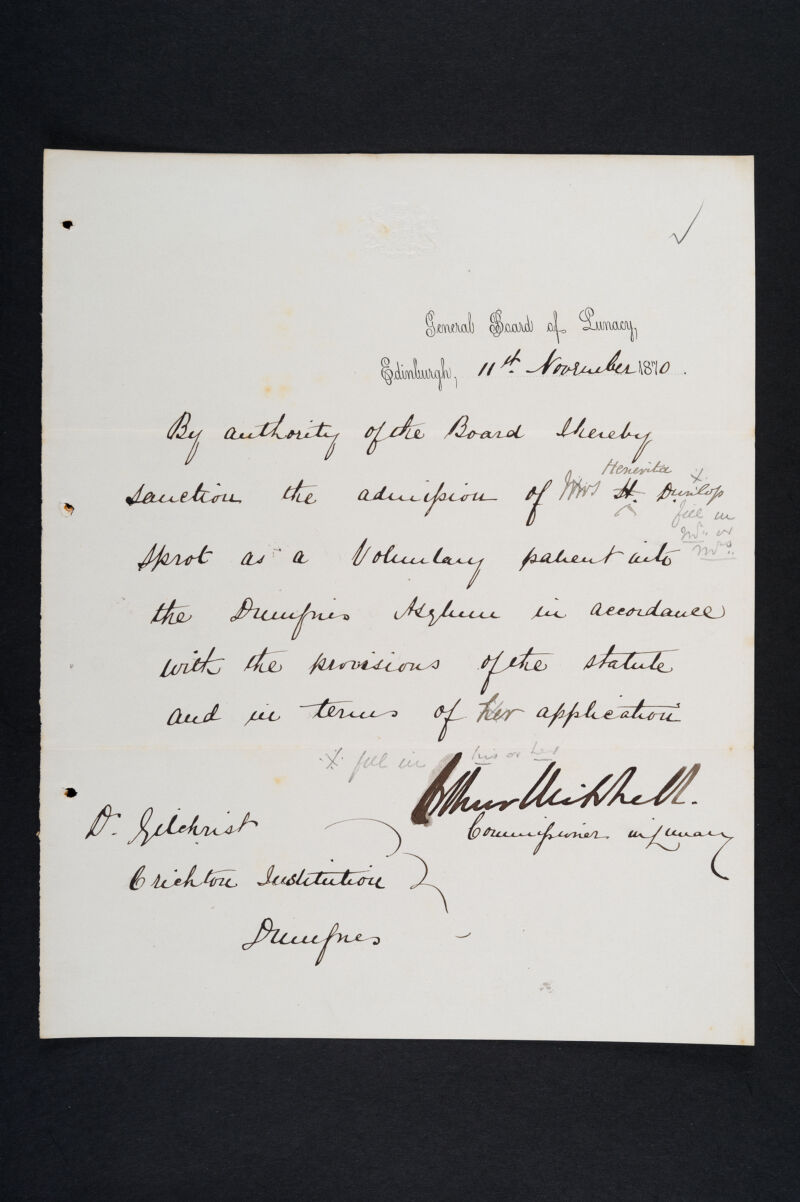 General Board of Lunacy,
Edinburgh, 11th. November 1870.
By authority of the Board I hereby
Henerita
sanction the admission of Mrs H. Dunlop
x fill in
Mr. or
Mrs.
Sprot as a Voluntary patient into
the Dumfries Asylum in accordance
with the provisions of the statute
and in terms of her application
x fill in his or her
Arthur Mitchell.
Commissioner in Lunacy
Dr. Gilchrist
Crichton Institution
Dumfries